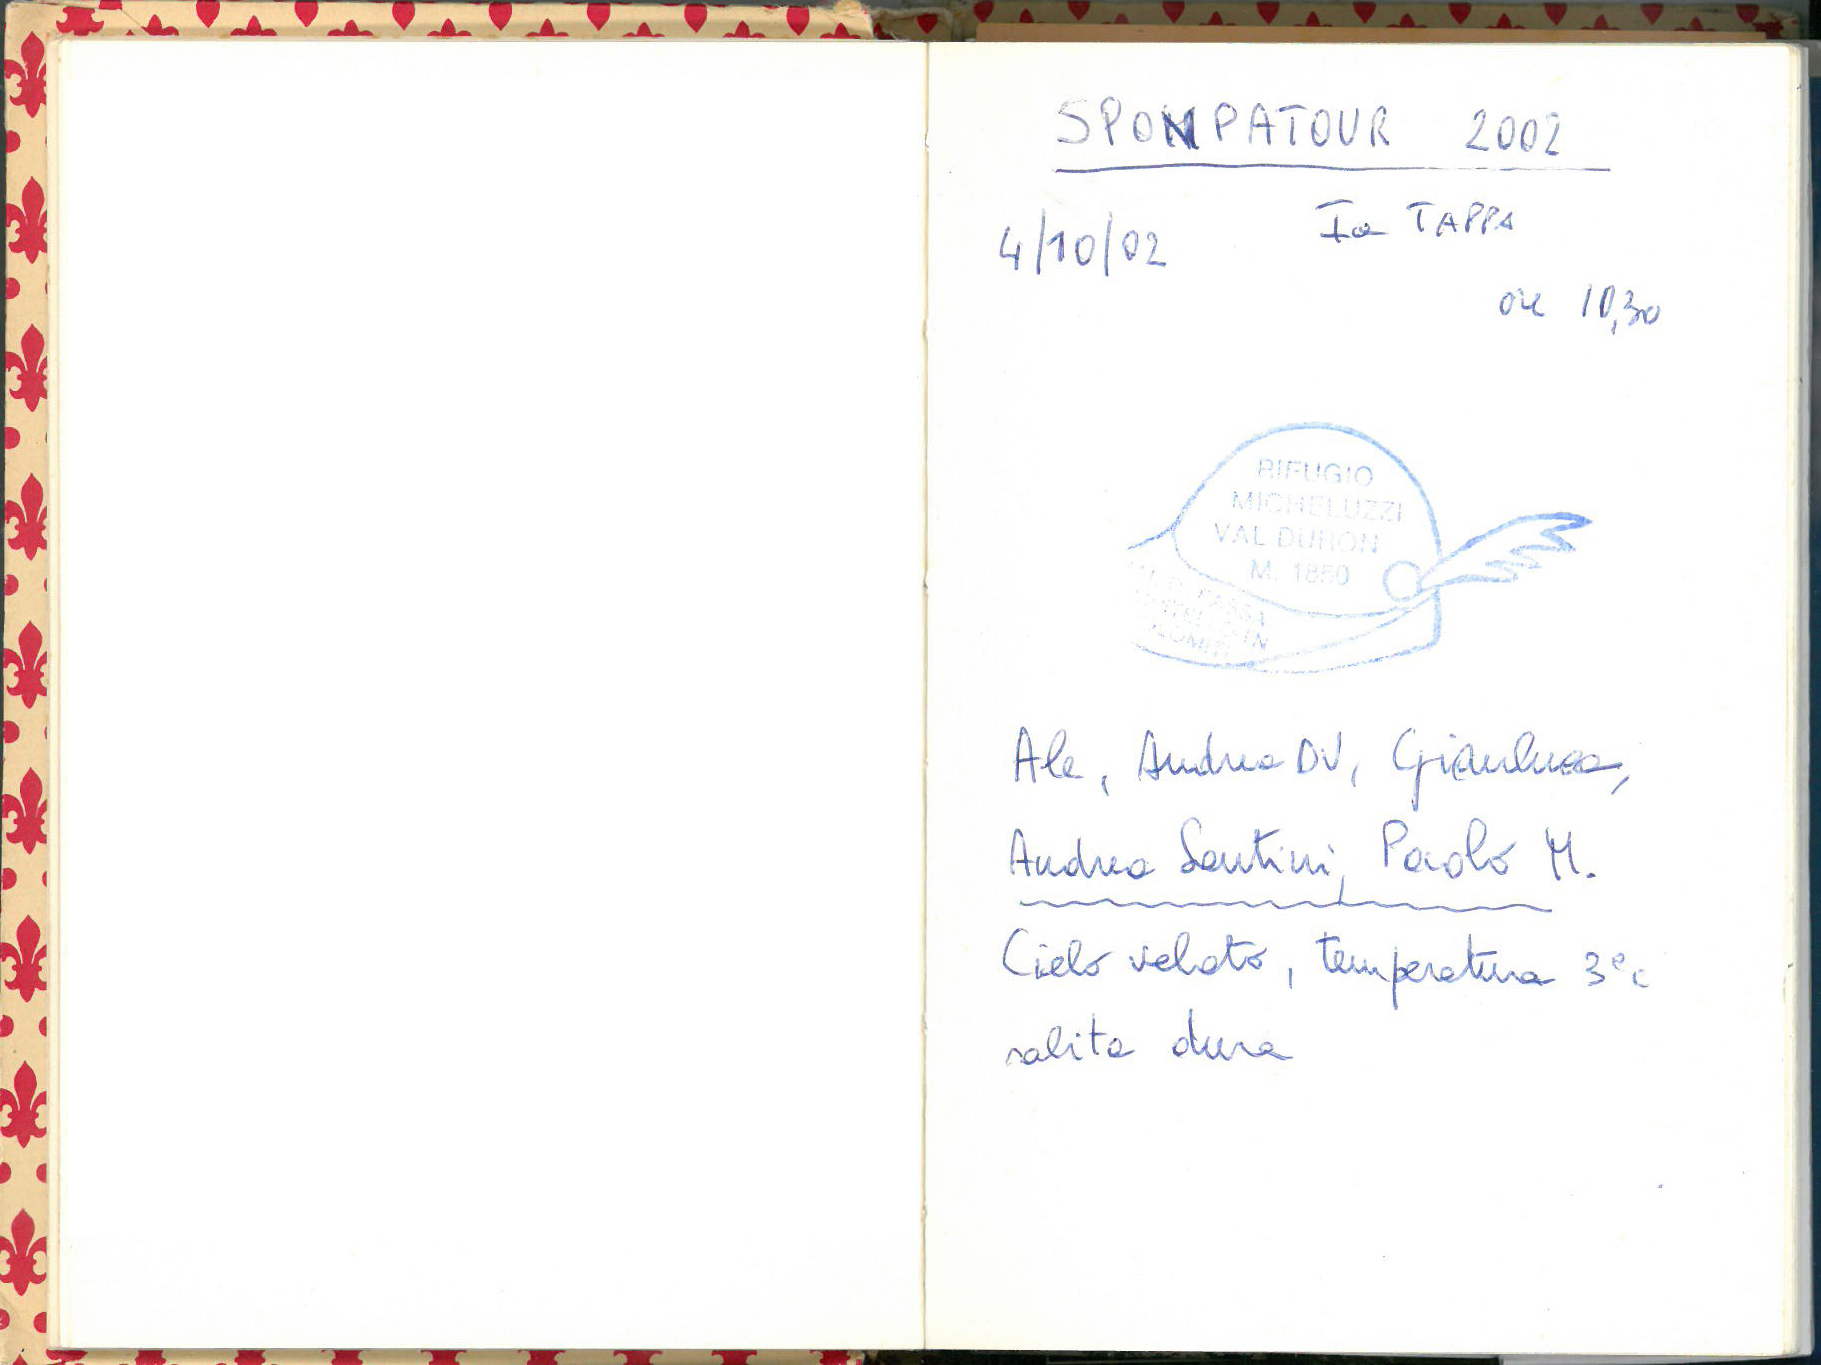 SPOMPATOUR 2002
4/10/02
Ia TAPPA
ore 10,30
RIFUGIO
MICHELUZZI
VAL DURON
M. 1860
FASSA
Ale, Andrea DV, Gianluca,
Andrea Santini, Paolo M.
Cielo velato, temperatura 3°c
salita dura